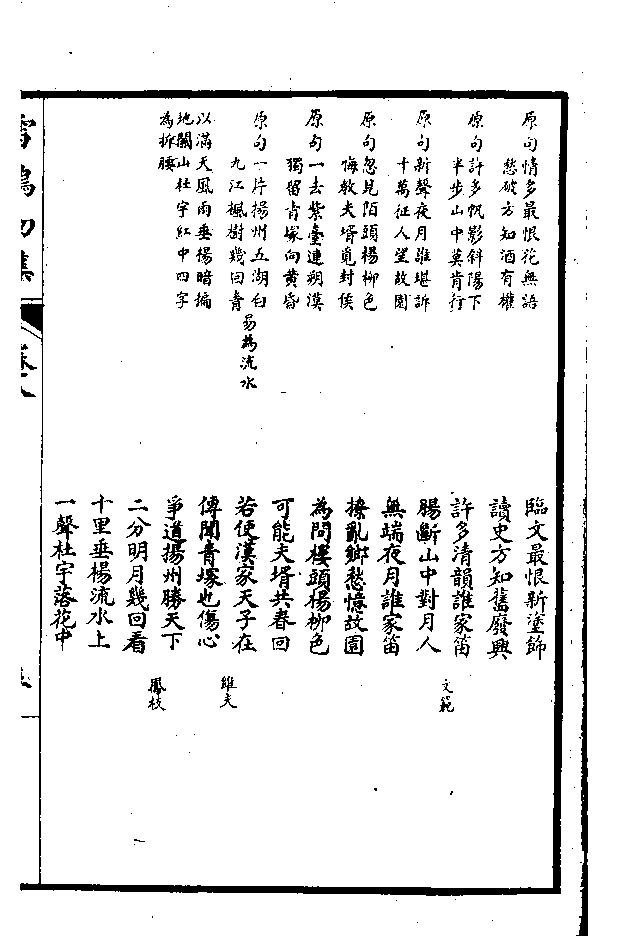 原句情多最恨花無語
愁破方知酒有權
原句許多帆影斜陽下
半步山中莫肯行
原句新聲夜月誰堪訴
十萬征人望故園
原句忽見陌頭楊柳色
悔教夫壻覓封侯
原句一去紫臺連朔漠
獨留青塚向黃昏
原句一片揚州五湖白
九江楓樹幾回青
易為流水
以滿天風雨垂楊暗
地關山杜宇紅中四字
為折腰
臨文最恨新塗飾
讀史方知舊廢興
許多清韻誰家笛
腸斷山中對月人
文範
無端夜月誰家笛
撩亂鄉愁憶故園
為問樓頭楊柳色
可能夫壻共春回
若使漢家天子在
傳聞青塚也傷心
維夫
爭道揚州勝天下
二分明月幾回看
鳳枝
十里垂楊流水上
一聲杜宇落花中
雪鴻初集
卷八